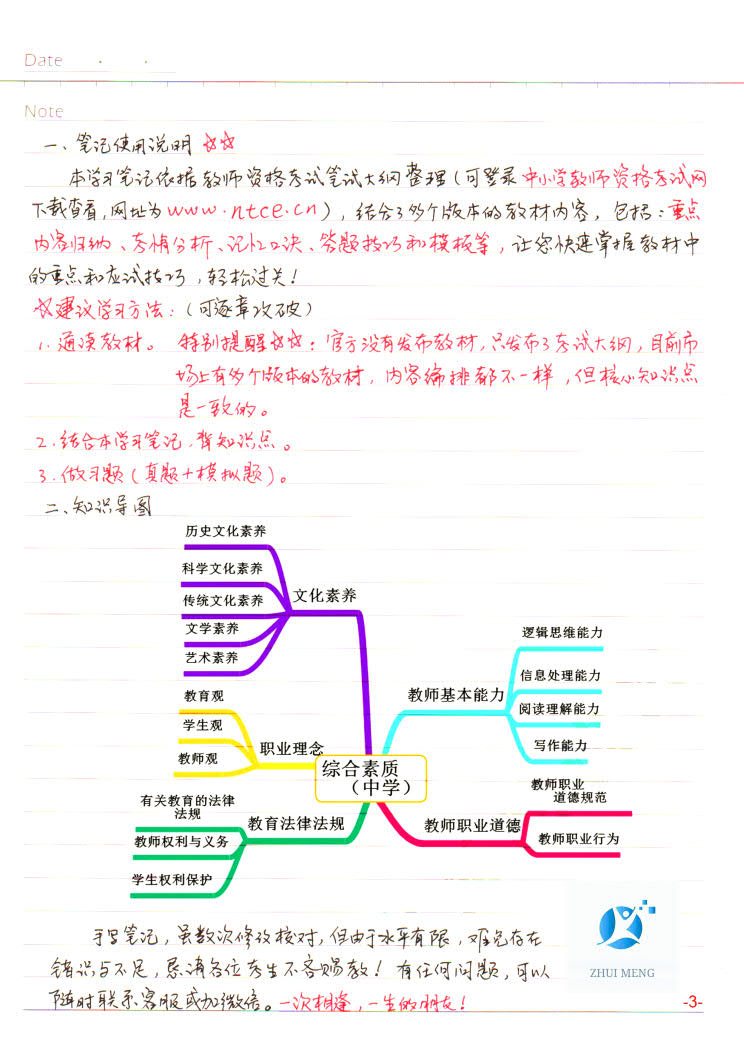 Date
Note
一、笔记使用说明 ☆☆
本学习笔记依据教师资格考试笔试大纲整理(可登录中小学教师资格考试网
下载查看,网址为www.ntce.cn),结合了多个版本的教材内容,包括:重点
内容归纳、考情分析、记忆口诀、答题技巧和模板等,让您快速掌握教材中
的重点和应试技巧,轻松过关!
☆建议学习方法:(可逐章攻破)
1.通读教材。 特别提醒☆☆:官方没有发布教材,只发布了考试大纲,目前市
场上有多个版本的教材,内容编排都不一样,但核心知识点
是一致的。
2.结合本学习笔记,背知识点。
3.做习题(真题+模拟题)。
二、知识导图
历史文化素养
科学文化素养
传统文化素养
文学素养
艺术素养
文化素养
教育观
学生观
教师观
职业理念
有关教育的法律
法规
教师权利与义务
学生权利保护
教育法律法规
综合素质
(中学)
教师基本能力
逻辑思维能力
信息处理能力
阅读理解能力
写作能力
教师职业道德
教师职业
道德规范
教师职业行为
手写笔记,虽数次修改核对,但由于水平有限,难免存在
错误与不足,恳请各位考生不吝赐教!有任何问题,可以
随时联系客服或加微信。一次相逢,一生做朋友!
ZHUI MENG
-3-